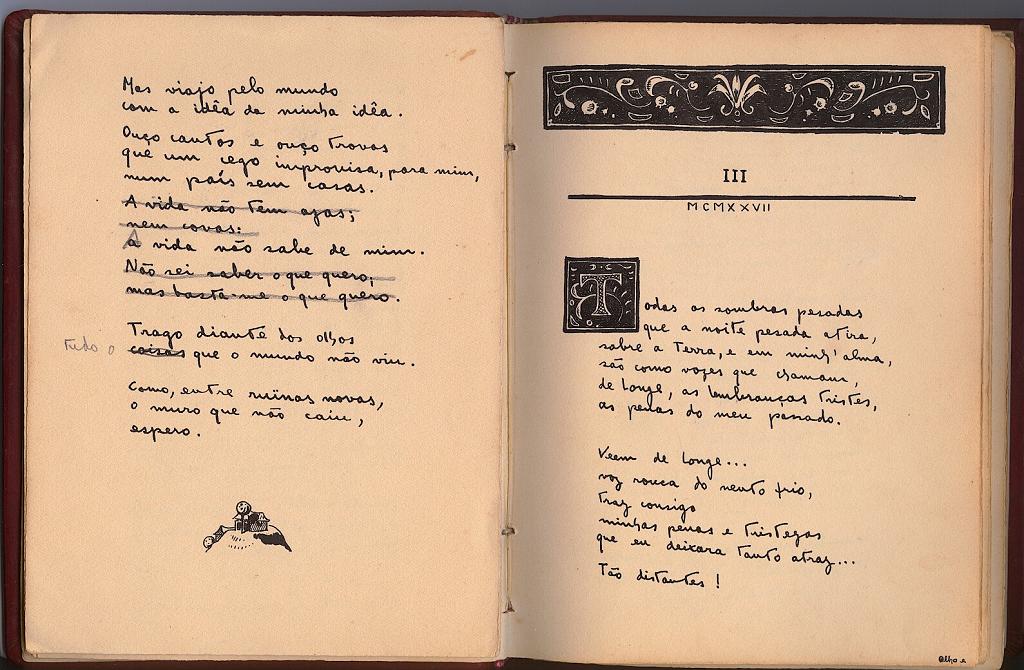 Mas viajo pelo mundo
com a idêa da minha idêa.
Ouço cantos e ouço trovas
que um cego improvisa, para mim,
num país sem casas.
A vida não tem azas;
nem covas:
A vida não sabe de mim.
Não sei saber o que quero;
mas basta-me o que quero.
Trago diante dos olhos
tudo o coisas que o mundo não viu.
Como, entre ruinas novas,
o muro que não caiu,
espero.
III
MCMXXVII
Todas as sombras pesadas
que a noite pesada atira,
sobre a Terra, e em minh'alma,
são como vozes que chamam,
de longe, as lembranças tristes,
as penas do meu passado.
Veem de longe...
voz rouca do vento frio,
traz consigo
minhas penas e tristezas
que eu deixara tanto atraz...
Tão distantes!
Olho a